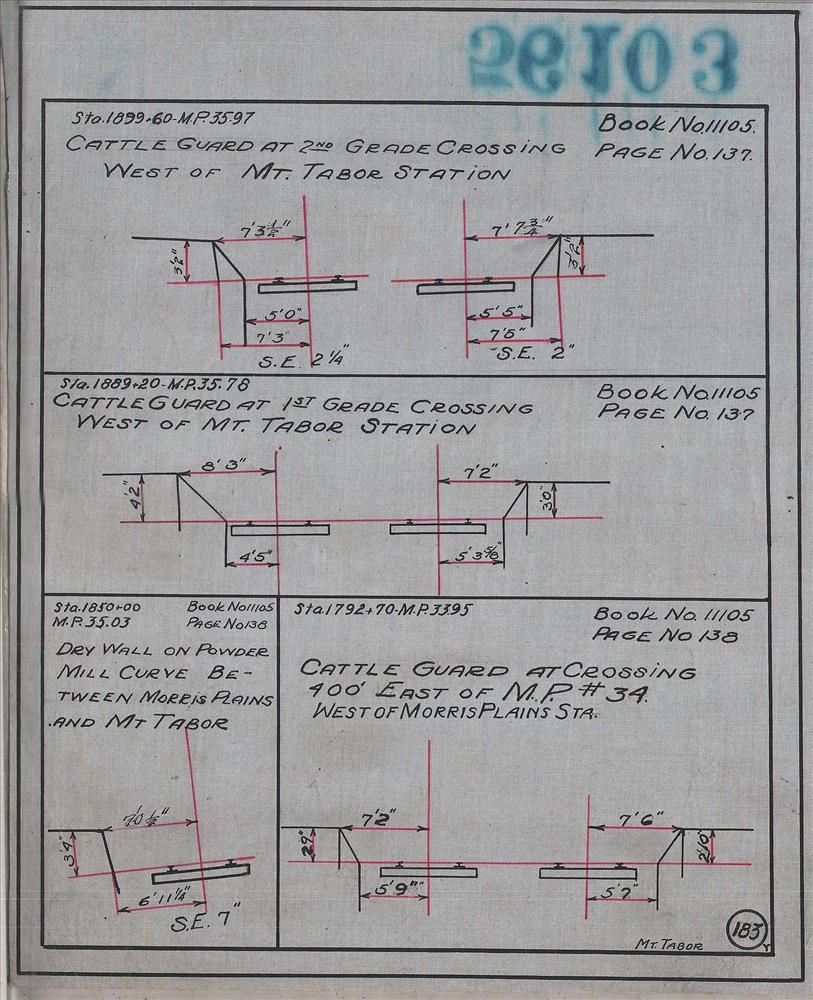 56103
Sta.1899+60-M.P.35.97
Book No.11105.
CATTLE GUARD AT 2ND GRADE CROSSING
PAGE No.137.
WEST OF MT. TABOR STATION
7'3½"
7'7¾"
3'2"
3'2"
5'0"
5'5"
7'3"
7'5"
S.E. 2¼"
S.E. 2"
Sta.1889+20-M.P.35.78
Book No.11105
CATTLE GUARD AT 1ST GRADE CROSSING
PAGE No. 137
WEST OF MT. TABOR STATION
8'3"
7'2"
4'2"
3'0"
4'5"
5'3⅝"
Sta.1850+00
Book No11105
M.P.35.03
PAGE No138
DRY WALL ON POWDER
MILL CURVE BE-
TWEEN MORRIS PLAINS
AND MT TABOR
7'0½"
3'4"
6'11¼"
S.E. 7"
Sta.1792+70-M.P.33.95
Book No. 11105
PAGE No 138
CATTLE GUARD AT CROSSING
400' EAST OF M.P. # 34.
WEST OF MORRIS PLAINS STA.
7'2"
7'6"
2'9"
2'10"
5'9"
5'7"
MT. TABOR
183